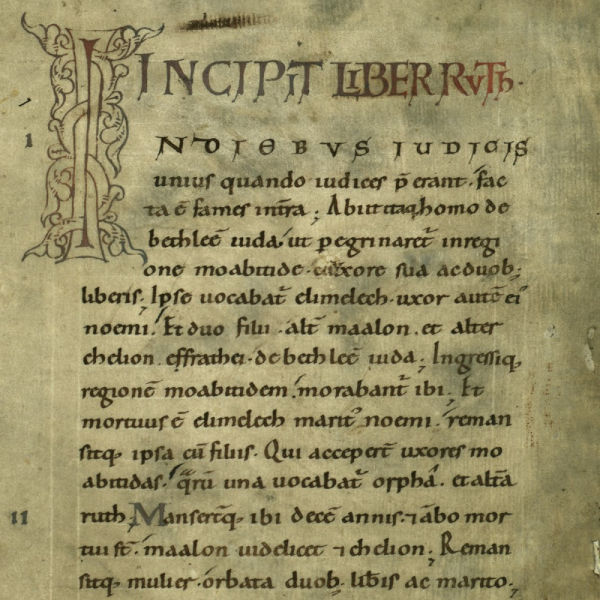 INCIPIT LIBER RUTH.
I
IN DIEBUS IUDICIS
unius quando iudices p̄erant. fac
ta ē fames in tr̄a; Abiit itaq; homo de
bethleē iuda, ut peregrinaret̄ in regi
one moabitide. cū uxore sua ac duob;
liberis; Ipse uocabat̄ elimelech. uxor autē ei᾽
noemi; Et duo filii. alt̄ maalon. et alter
chelion. effrathei. de bethleē iuda; Ingressiq;
regionē moabitidem, morabant̄ ibi; Et
mortuus ē elimelech marit᾽ noemi. reman
sitq; ipsa cū filiis. Qui accepert̄ uxores mo
abitidas. quarū una uocabat̄ orpha. et altā
ruth. Mansert̄q; ibi decē annis. ⁊ ābo mor
II
tui st̄. maalon uidelicet ⁊ chelion; Reman
sitq; mulier. orbata duob; lib̄is ac marito;